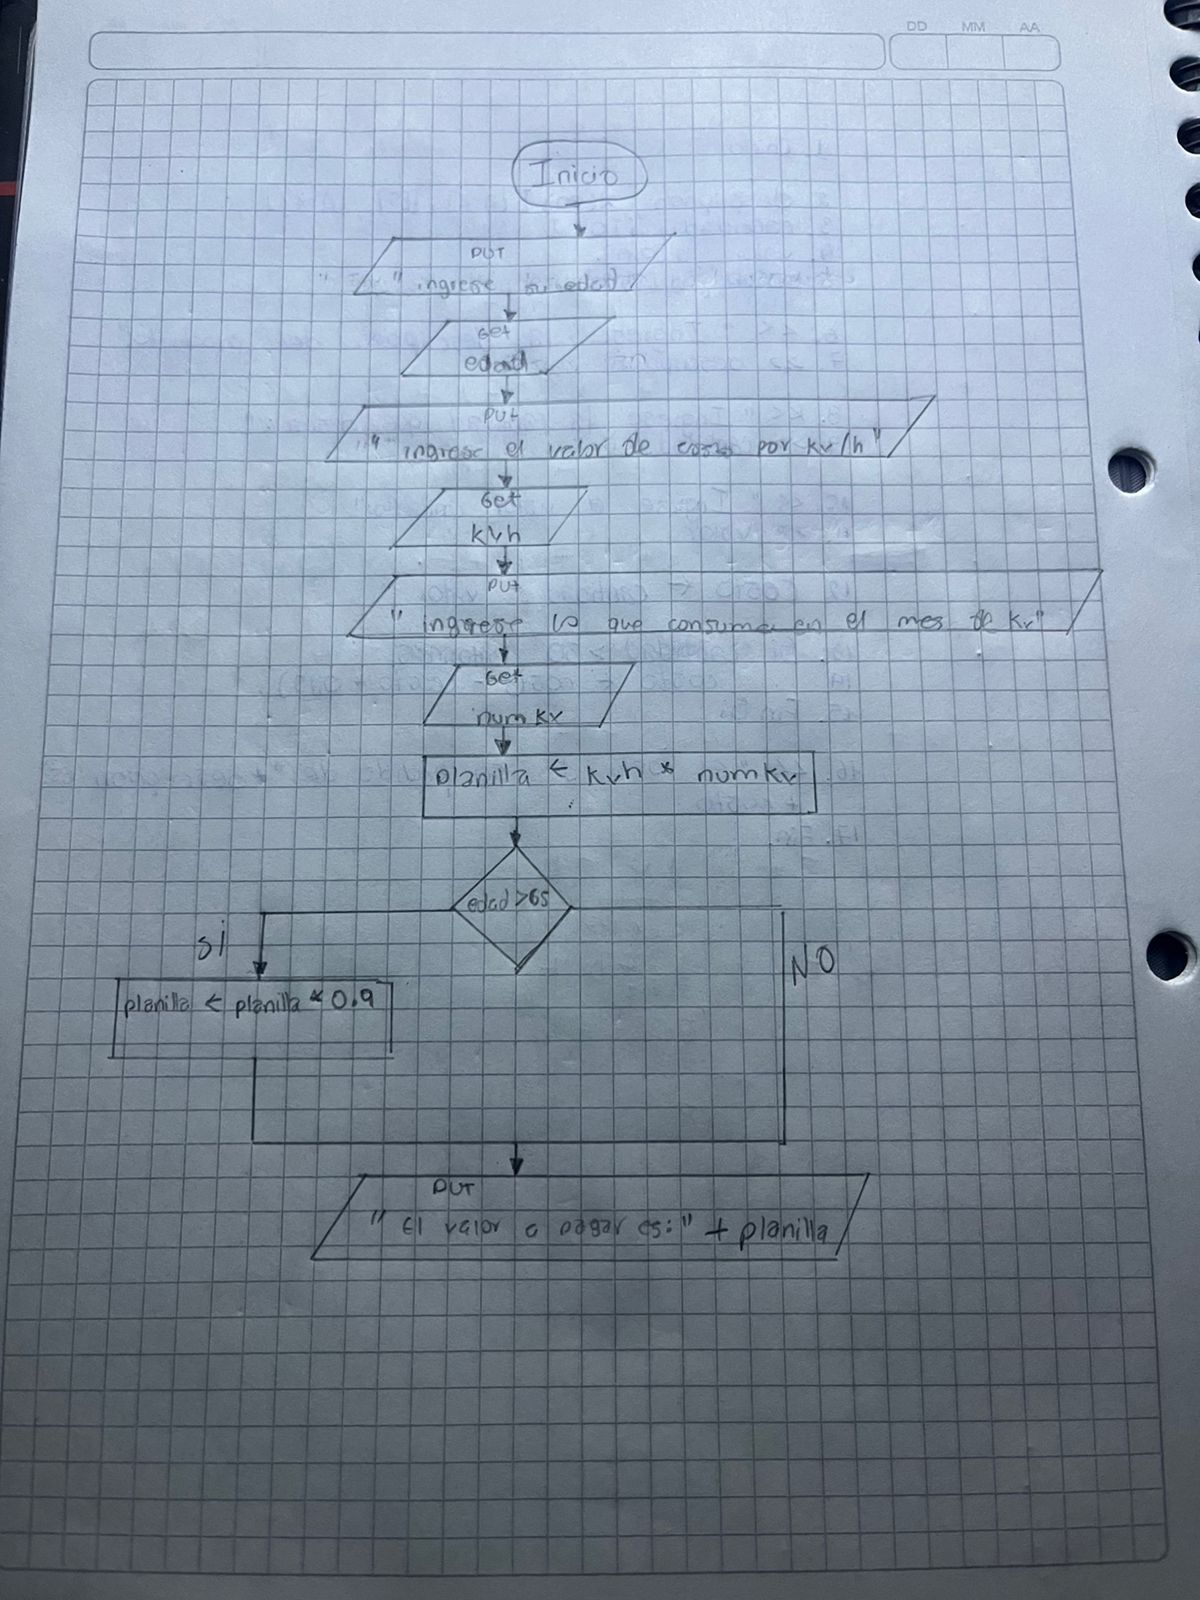 DD MM AA
Inicio
PUT
" ingrese su edad
Get
edad
PUT
" ingrese el valor de costo por kv/h"
Get
kvh
PUT
" ingrese lo que consume en el mes de kv"
Get
numkv
planilla ← kvh * numkv
edad >65
si
NO
planilla ← planilla * 0.9
PUT
" El valor a pagar es:" + planilla